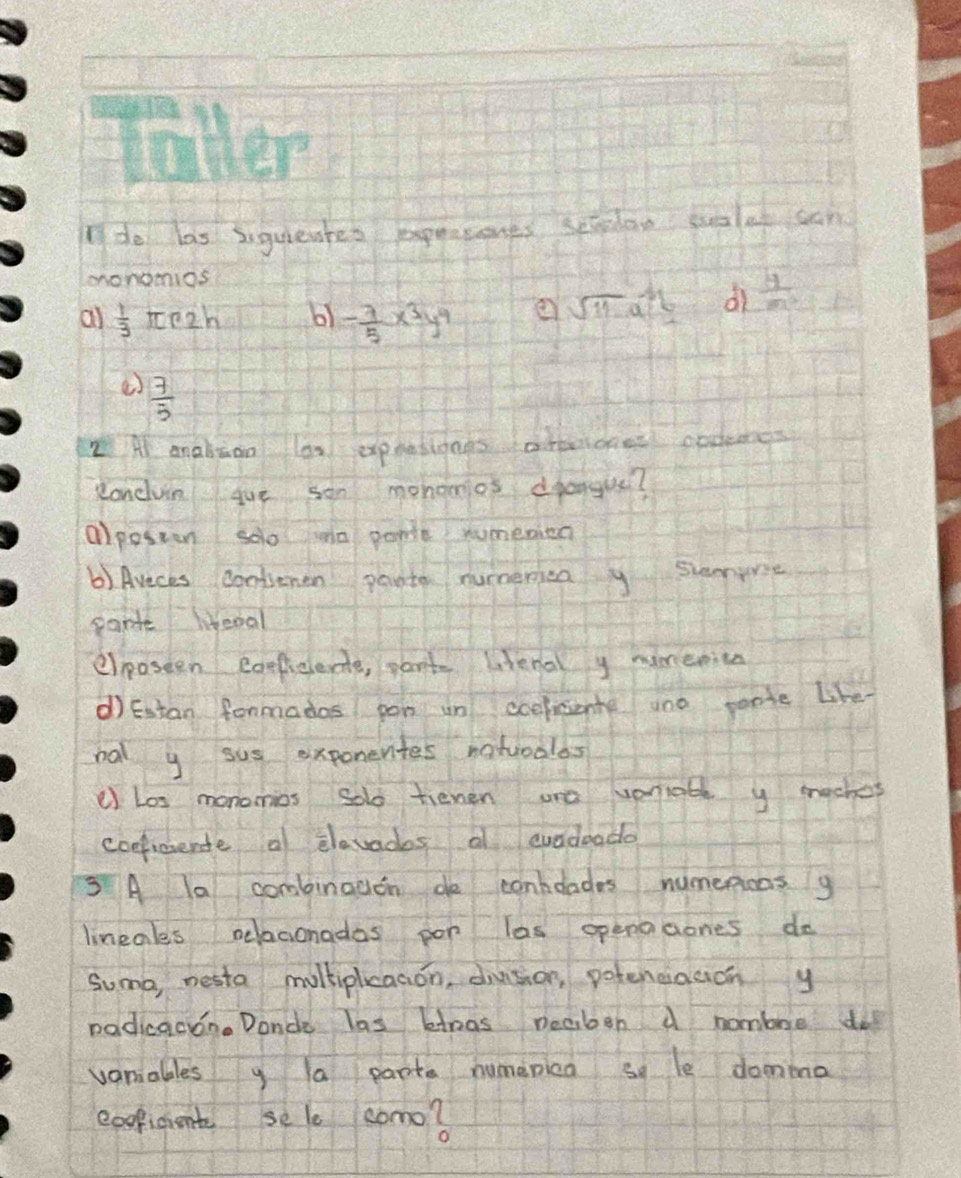 Taller
1 de las siguientes expresiones señalan cuales son
monomios
a) 1/3 πr2h b) -7/5 x³y⁹ c) √11 d) 4/m
e) 7/5
2 Al analizan las expresiones podemos
concluin que son monomios dponque?
a) poseen solo una parte numenica
b) Aveces contienen pante numenica y siempre
parte litenal
c) poseen coeficiente, parte litenal y numenica
d) Estan fonmados pon un coeficiente una ponte Lite-
nal y sus exponentes natunales
e) Los monomios solo tienen una vaniable y muchos
coeficiente al elevados al cuadnado
3 A la combinación de cantidades numenicas y
lineales nelacionadas pon las openaciones de
suma, nesta multiplicación, division, potenciación y
nadicación. Donde las letnas neciben d nombne de
vaniables y la parte numenica se le domina
coeficiente se le como?